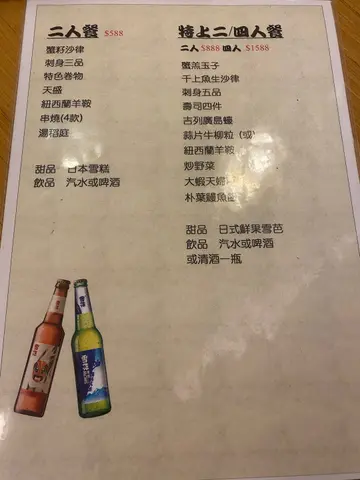 二人餐 $588
蟹籽沙律
刺身三品
特色卷物
天盛
紐西蘭羊鞍
串燒(4款)
湯稻庭
甜品 日本雪糕
飲品 汽水或啤酒
特上二/四人餐
二人 $888 四人 $1588
蟹羔玉子
千上魚生沙律
刺身五品
壽司四件
吉列廣島蠔
蒜片牛柳粒 (或)
紐西蘭羊鞍
炒野菜
大蝦天婦
朴葉鰻魚
甜品 日式鮮果雪芭
飲品 汽水或啤酒
或清酒一瓶